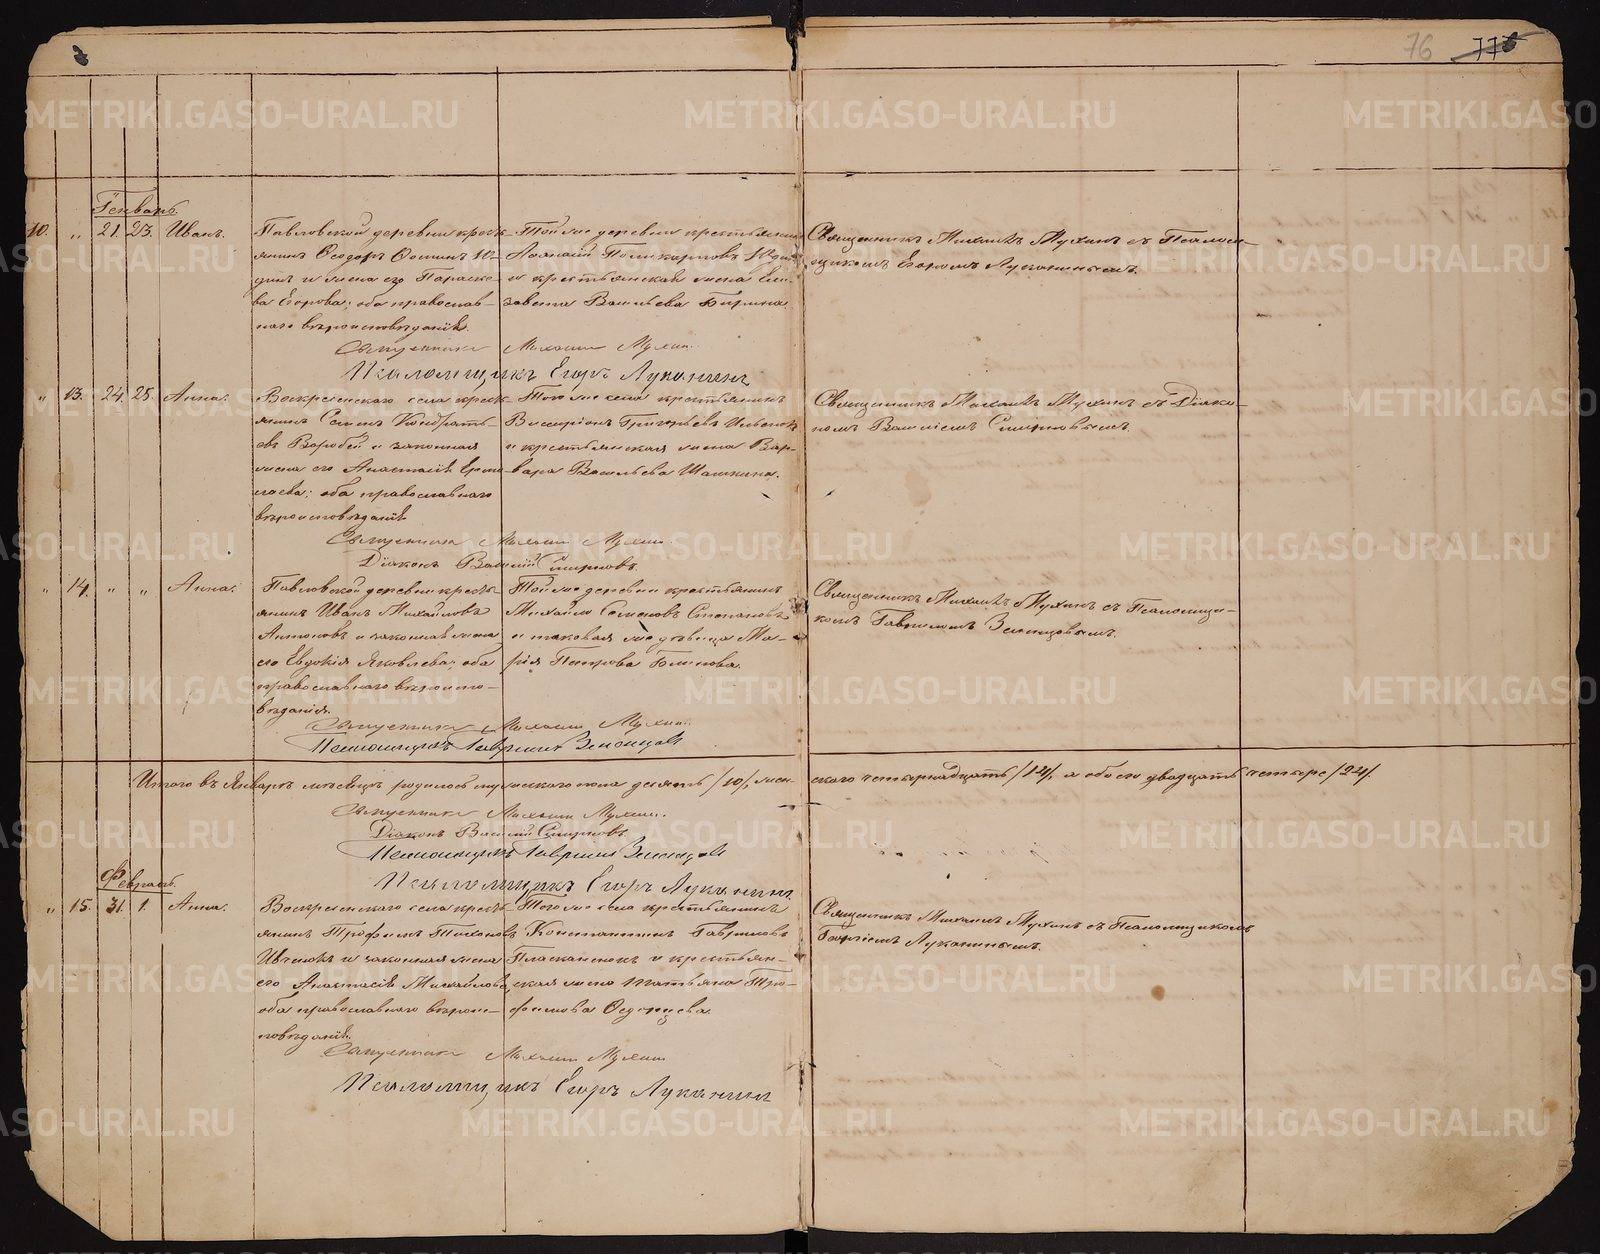 76
Генварь.
10. " 21. 23. Иванъ.
Павловской деревни кресть-
янинъ Ѳеодоръ Ѳоминъ Ю-
динъ и жена его Параске-
ва Егорова; оба православ-
наго вѣроисповѣданія.
Той же деревни крестьянинъ
Аѳанасій Поликарповъ Юдинъ
и крестьянская жена Ели-
завета Васильева
Священникъ Михаилъ Мухинъ съ Псаломщ-
щикомъ Егоромъ Луканинымъ.
Священникъ Михаилъ Мухин.
Псаломщикъ Егоръ Луканинъ
" 13. 24. 25. Анна.
Воскресенскаго села кресть-
янинъ Семенъ Кондрать-
евъ Воробей и законная
жена его Анастасія
оба православнаго
вѣроисповѣданія
Того же села крестьянинъ
Виссаріонъ Григорьевъ
и крестьянская жена Вар-
вара Васильева Шашкина.
Священникъ Михаилъ Мухинъ съ Діако-
номъ Василіемъ Смирновымъ.
Священникъ Михаилъ Мухин
Діаконъ Василій Смирновъ
" 14. " " Анна.
Павловской деревни кресть-
янинъ Иванъ Михайловъ
Антоновъ и законная жена
его Евдокія Яковлева; оба
православнаго вѣроиспо-
вѣданія.
Той же деревни крестьянинъ
Михайло Семеновъ Степановъ
и таковая же дѣвица Ма-
рія Петрова Блинова.
Священникъ Михаилъ Мухинъ съ Псаломщи-
комъ Гавриломъ Земляницовымъ.
Священникъ Михаилъ Мухин.
Псаломщикъ Гавриилъ
Итого въ Январѣ мѣсяцѣ родилось мужескаго пола десять /10/, жен-
скаго четырнадцать /14/, а обоего двадцать четыре /24/.
Священникъ Михаилъ Мухин.
Діаконъ Василій Смирновъ
Псаломщикъ Гавриилъ
Псаломщикъ Егоръ Луканин.
Февраль.
" 15. 31. 1. Анна.
Воскресенскаго села кресть-
янинъ Трофимъ Тихоновъ
и законная жена
его Анастасія Михайлова,
оба православнаго вѣроис-
повѣданія.
Того же села крестьянинъ
Константинъ Гавриловъ
и крестьян-
ская жена Татьяна Тро-
фимова
Священникъ Михаилъ Мухинъ съ Псаломщикомъ
Георгіемъ Луканинымъ.
Священникъ Михаилъ Мухин
Псаломщикъ Егоръ Луканин
METRIKI.GASO-URAL.RU